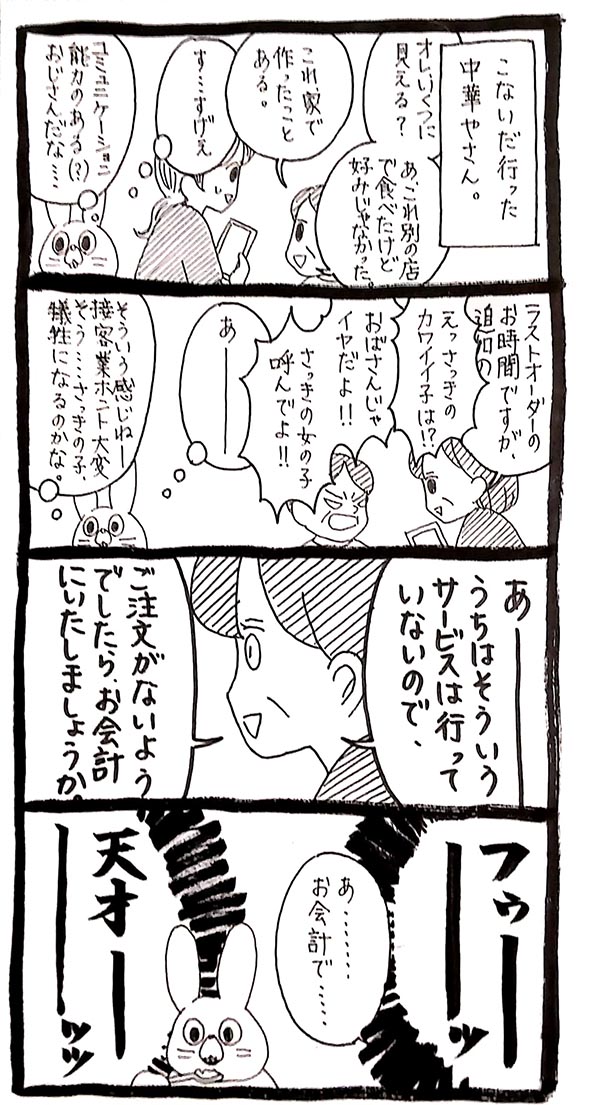 こないだ行った
中華やさん。
オレいくつに
見える?
あ、これ別の店
で食べたけど
好みじゃなかった。
これ、家で
作ったこと
ある。
す…すげぇ
コミュニケーション
能力のある(?)
おじさんだな…
ラストオーダーの
お時間ですが、
追加の
えっさっきの
カワイイ子は!?
おばさんじゃ
イヤだよ!!
さっきの女の子
呼んでよ!!
あ――
そういう感じねー
接客業ホント大変
そう……さっきの子、
犠牲になるのかな。
あ――
うちはそういう
サービスは行って
いないので、
ご注文がないよう
でしたら、お会計
にいたしましょうか。
フゥ――
――ッ
あ………
お会計で……
天才――
――ッッ